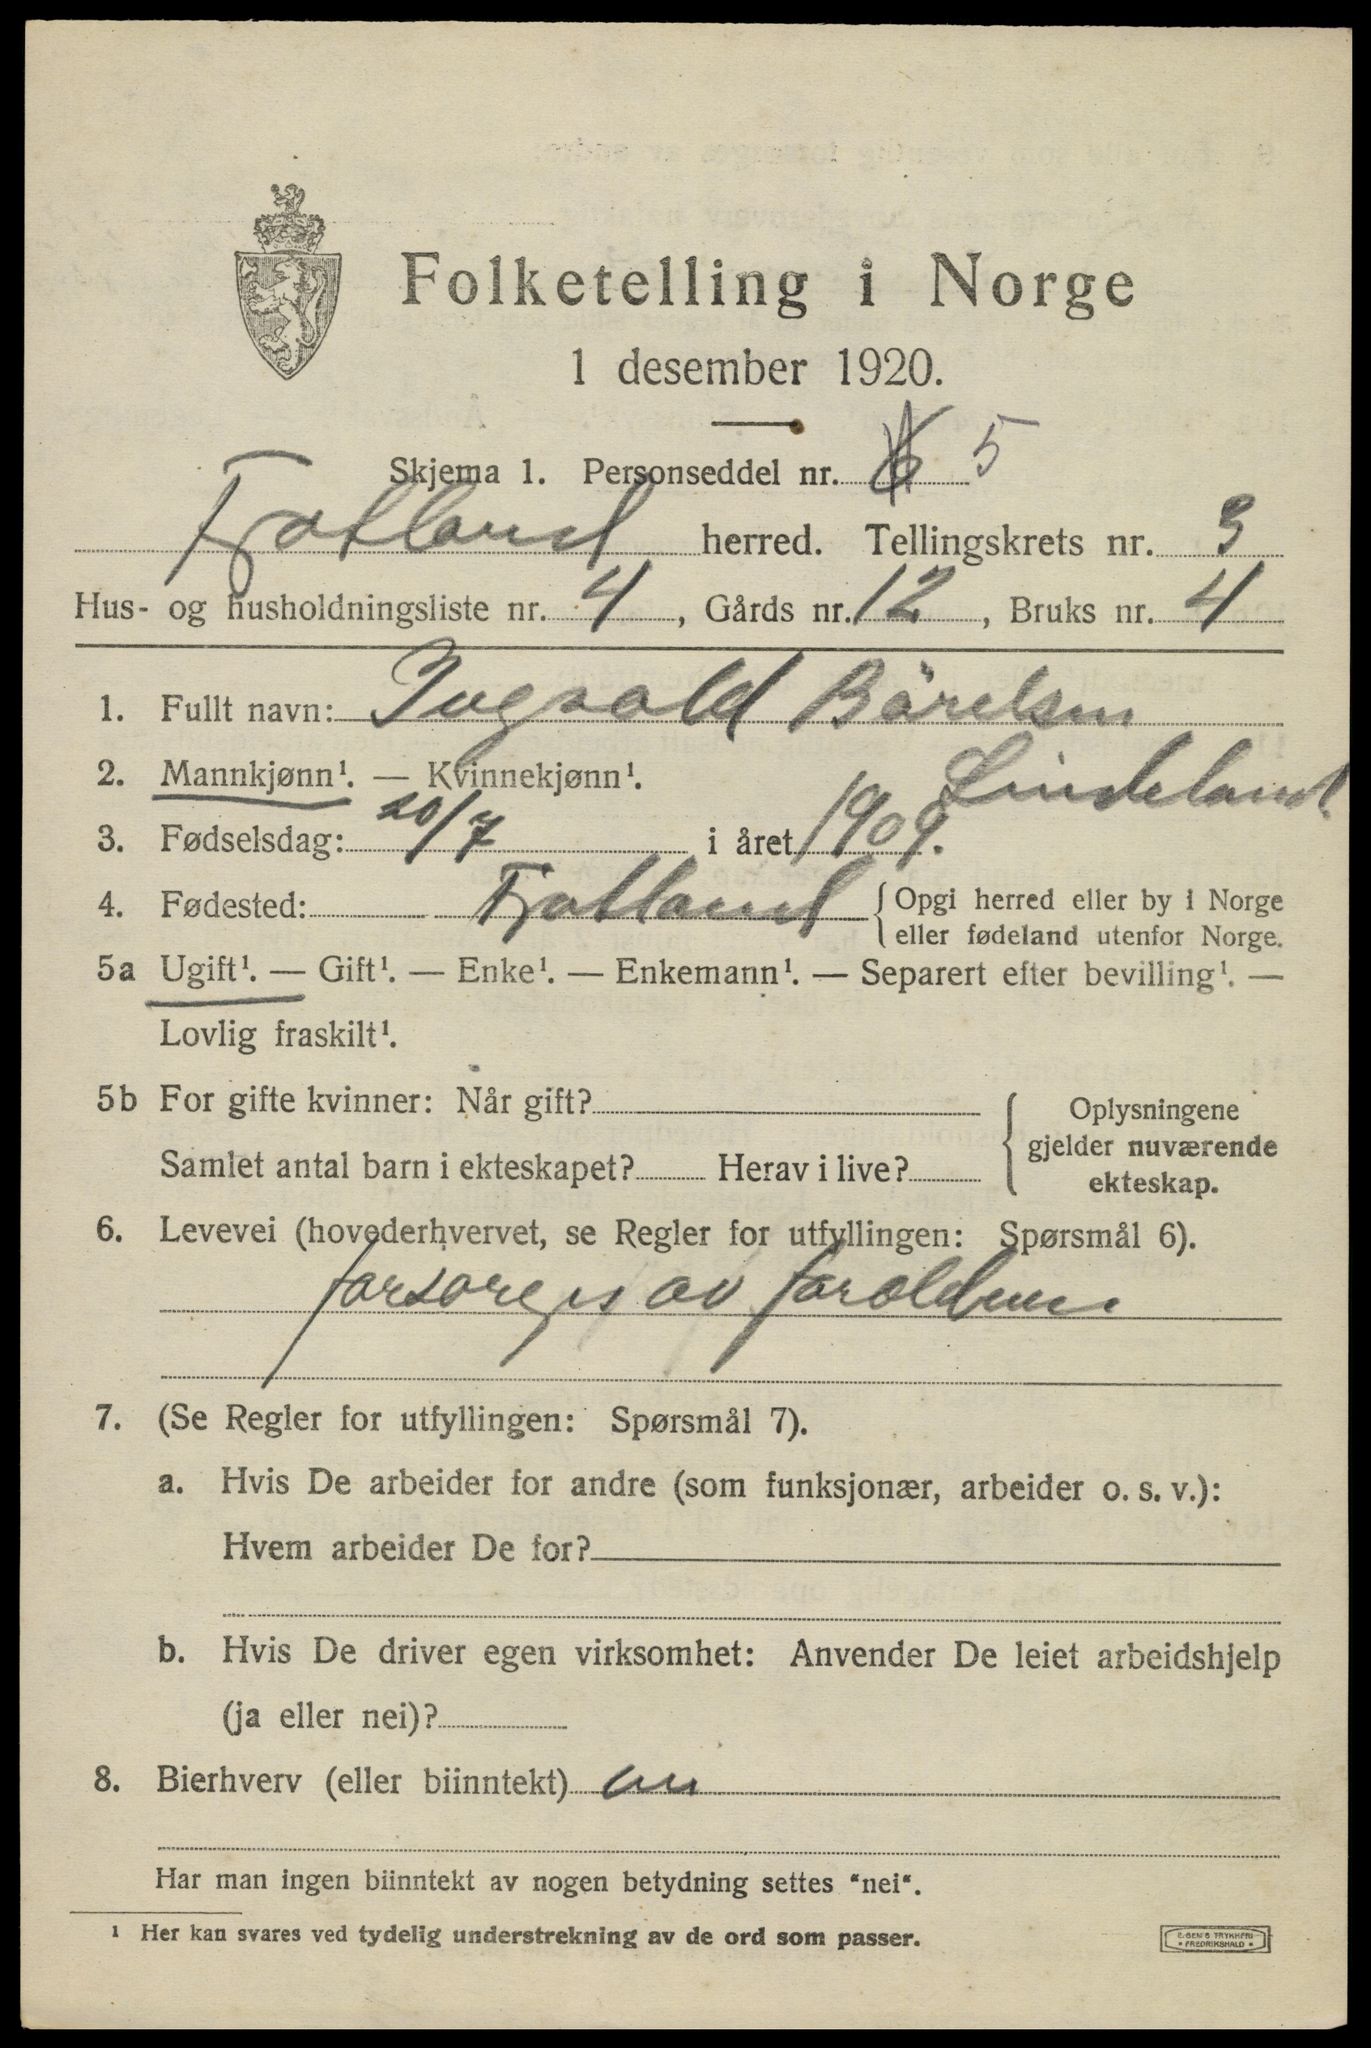 Folketelling i Norge
1 desember 1920.
Skjema 1. Personseddel nr. 5
Fjotland herred. Tellingskrets nr. 3
Hus- og husholdningsliste nr. 4, Gårds nr. 12, Bruks nr. 4
1. Fullt navn: Ingvald Bårdsen
Lindeland
2. Mannkjønn¹. — Kvinnekjønn¹.
3. Fødselsdag: 20/7 i året 1909.
4. Fødested: Fjotland { Opgi herred eller by i Norge
eller fødeland utenfor Norge.
5a Ugift¹. — Gift¹. — Enke¹. — Enkemann¹. — Separert efter bevilling¹. —
Lovlig fraskilt¹.
5b For gifte kvinner: Når gift? { Oplysningene
gjelder nuværende
ekteskap.
Samlet antal barn i ekteskapet? Herav i live?
6. Levevei (hovederhvervet, se Regler for utfyllingen: Spørsmål 6).
forsorges av foreldrene
7. (Se Regler for utfyllingen: Spørsmål 7).
a. Hvis De arbeider for andre (som funksjonær, arbeider o. s. v.):
Hvem arbeider De for?
b. Hvis De driver egen virksomhet: Anvender De leiet arbeidshjelp
(ja eller nei)?
8. Bierhverv (eller biinntekt)
Har man ingen biinntekt av nogen betydning settes "nei".
¹ Her kan svares ved tydelig understrekning av de ord som passer.
E. SEM'S TRYKKERI
• FREDRIKSHALD •